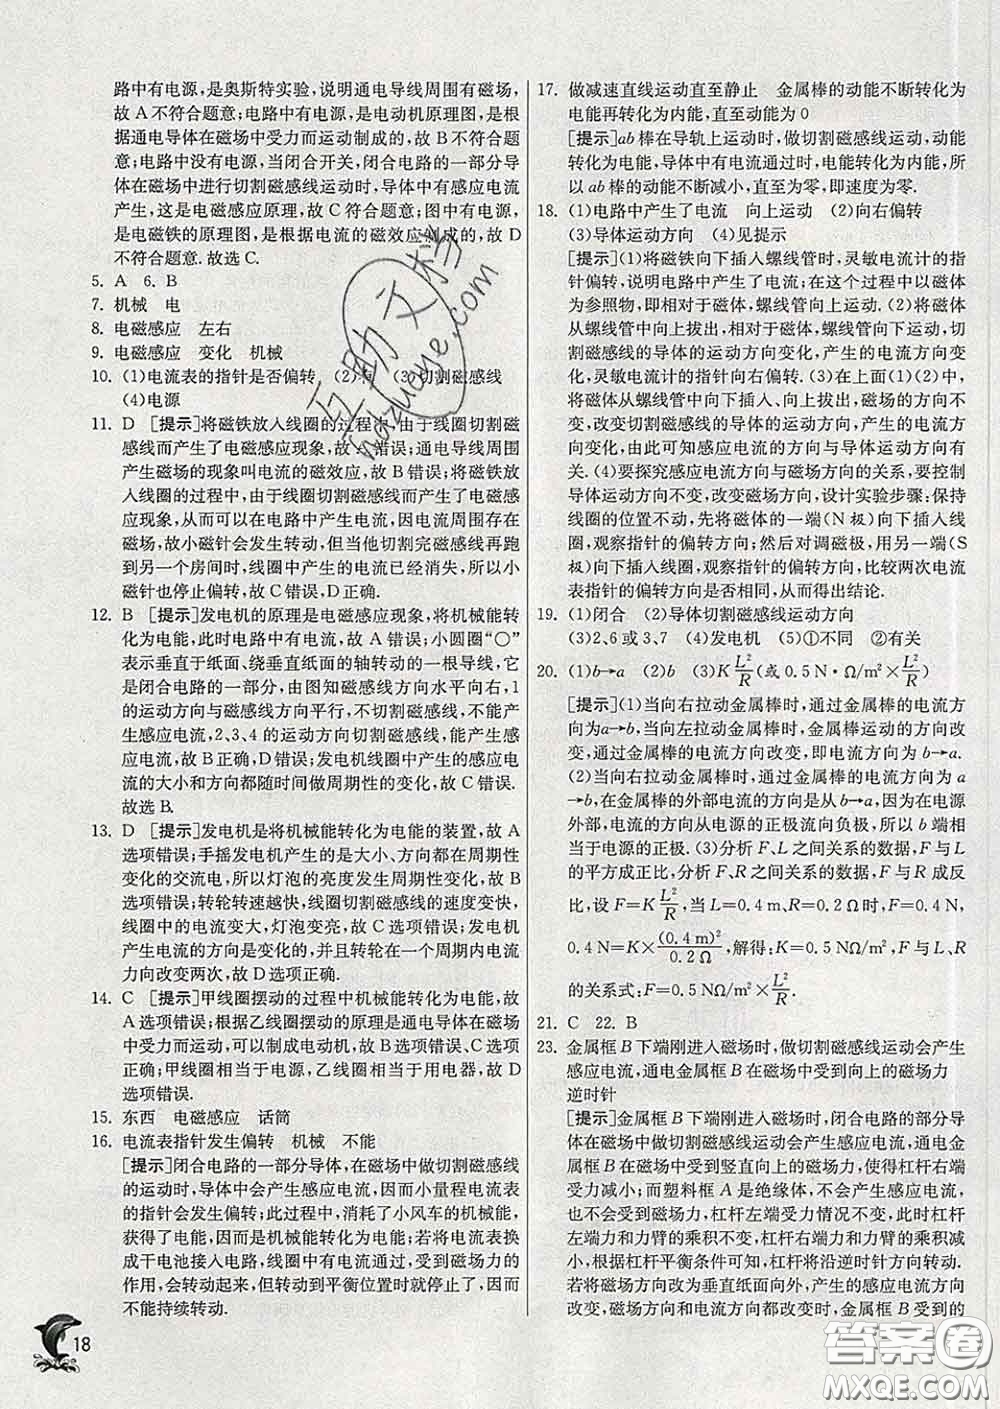 路中有电源,是奥斯特实验,说明通电导线周围有磁场,
故 A 不符合题意;电路中有电源,是电动机原理图,是根
据通电导体在磁场中受力而运动制成的,故 B 不符合题
意;电路中没有电源,当闭合开关,闭合电路的一部分导
体在磁场中进行切割磁感线运动时,导体中有感应电流
产生,这是电磁感应原理,故 C 符合题意;图中有电源,
是电磁铁的原理图,是根据电流的磁效应制成的,故 D
不符合题意.故选 C.
5. A 6. B
7. 机械 电
8. 电磁感应 左右
9. 电磁感应 变化 机械
10. (1)电流表的指针是否偏转 (2) (3)切割磁感线
(4)电源
11. D [提示]将磁铁放入线圈的过程中,由于线圈切割磁
感线而产生了电磁感应现象,故 A 错误;通电导线周围
产生磁场的现象叫电流的磁效应,故 B 错误;将磁铁放
入线圈的过程中,由于线圈切割磁感线而产生了电磁感
应现象,从而可以在电路中产生电流,因电流周围存在
磁场,故小磁针会发生转动,但当他切割完磁感线再跑
到另一个房间时,线圈中产生的电流已经消失,所以小
磁针也停止偏转,故 C 错误,D 正确.
12. B [提示]发电机的原理是电磁感应现象,将机械能转
化为电能,此时电路中有电流,故 A 错误;小圆圈“○”
表示垂直于纸面、绕垂直纸面的轴转动的一根导线,它
是闭合电路的一部分,由图知磁感线方向水平向右,1
的运动方向与磁感线方向平行,不切割磁感线,不能产
生感应电流,2、3、4 的运动方向切割磁感线,能产生感
应电流,故 B 正确,D 错误;发电机线圈中产生的感应电
流的大小和方向都随时间做周期性的变化,故 C 错误.
故选 B.
13. D [提示]发电机是将机械能转化为电能的装置,故 A
选项错误;手摇发电机产生的是大小、方向都在周期性
变化的交流电,所以灯泡的亮度发生周期性变化,故 B
选项错误;转轮转速越快,线圈切割磁感线的速度变快,
线圈中的电流变大,灯泡变亮,故 C 选项错误;发电机
产生电流的方向是变化的,并且转轮在一个周期内电流
力向改变两次,故 D 选项正确.
14. C [提示]甲线圈摆动的过程中机械能转化为电能,故
A 选项错误;根据乙线圈摆动的原理是通电导体在磁场
中受力而运动,可以制成电动机,故 B 选项错误、C 选项
正确;甲线圈相当于电源,乙线圈相当于用电器,故 D
选项错误.
15. 东西 电磁感应 话筒
16. 电流表指针发生偏转 机械 不能
[提示]闭合电路的一部分导体,在磁场中做切割磁感线
的运动时,导体中会产生感应电流,因而小量程电流表
的指针会发生偏转;此过程中,消耗了小风车的机械能,
获得了电能,因而是机械能转化为电能;若将电流表换
成干电池接入电路,线圈中有电流通过,受到磁场力的
作用,会转动起来,但转动到平衡位置时就停止了,因而
不能持续转动.
17. 做减速直线运动直至静止 金属棒的动能不断转化为
电能再转化为内能,直至动能为 0
[提示]ab 棒在导轨上运动时,做切割磁感线运动,动能
转化为电能,导体中有电流通过时,电能转化为内能,所
以 ab 棒的动能不断减小,直至为零,即速度为零.
18. (1)电路中产生了电流 向上运动 (2)向右偏转
(3)导体运动方向 (4)见提示
[提示](1)将磁铁向下插入螺线管时,灵敏电流计的指
针偏转,说明电路中产生了感应电流,在此过程中以磁体
为参照物,即相对于磁体,螺线管向上运动.(2)将磁体
从螺线管中向上拔出,相对于磁体,螺线管向下运动,切
割磁感线的导体的运动方向变化,产生的电流方向变
化,灵敏电流计的指针向右偏转.(3)在上面(1)(2)中,
将磁体向下插入、向上拔出,磁场方向不变,切割磁感线
方向改变导致产生的感应电流方向改变,产生的电流方
向变化,由此可知感应电流的方向与导体运动方向
有关.(4)要探究感应电流方向与磁场方向的关系,要控制
导体运动方向不变,改变磁场方向,设计实验步骤:保持
线圈的位置不动,先将磁体的一端(N 极)向下插入线
圈,观察指针的偏转方向;然后对调磁极,用另一端(S
极)向下插入线圈,观察指针的偏转方向,比较两次电流
表指针的偏转方向是否相同,从而得出结论.
19. (1)闭合 (2)导体切割磁感线运动方向
(3)2、6 或 3、7 (4)发电机 (5)①不同 ②有关
20. (1)b→a (2)b (3)K L²/R(或 0.5 N·Ω/m²×L²/R)
[提示](1)当向右拉动金属棒时,通过金属棒的电流方
向为a→b,当向左拉动金属棒时,金属棒运动的方向改
变,通过金属棒的电流方向改变,即电流方向为 b→a.
(2)当向右拉动金属棒时,通过金属棒的电流方向为 a
→b,在金属棒的外部电流的方向是从 b→a,因为在电源
外部,电流方向从电源的正极流向负极,所以 b 端相
当于电源的正极.(3)分析 F、L 之间关系的数据,F 与 L
的平方成正比,分析 F、R 之间关系的数据,F 与 R 成反
比,设 F=K L²/R,当 L=0.4 m、R=0.2 Ω 时,F=0.4 N,
0.4 N=K×(0.4 m)²/0.2 Ω,解得:K=0.5 NΩ/m²,F 与 L、R
的关系式:F=0.5 NΩ/m²×L²/R.
21. C 22. B
23. 金属框 B 下端刚进入磁场时,做切割磁感线运动会产生
感应电流,通电金属框 B 在磁场中受到向上的磁场力
逆时针
[提示]金属框 B 下端刚进入磁场时,闭合电路的部分导
体在磁场中做切割磁感线运动会产生感应电流,通电金
属框 B 在磁场中受到竖直向上的磁场力,使得杠杆右端
受力减小;而塑料框 A 是绝缘体,不会产生感应电流,
也不会受到磁场力,杠杆左端受力情况不变,此时杠杆
左端力和力臂的乘积不变,右端力和力臂的乘积变小,
根据杠杆平衡条件可知,杠杆将沿逆时针方向转动.
若将磁场方向改为垂直纸面向外,产生的感应电流方向
改变,磁场方向和电流方向都改变时,金属框 B 受到的
18
答案圈
MXQE.COM